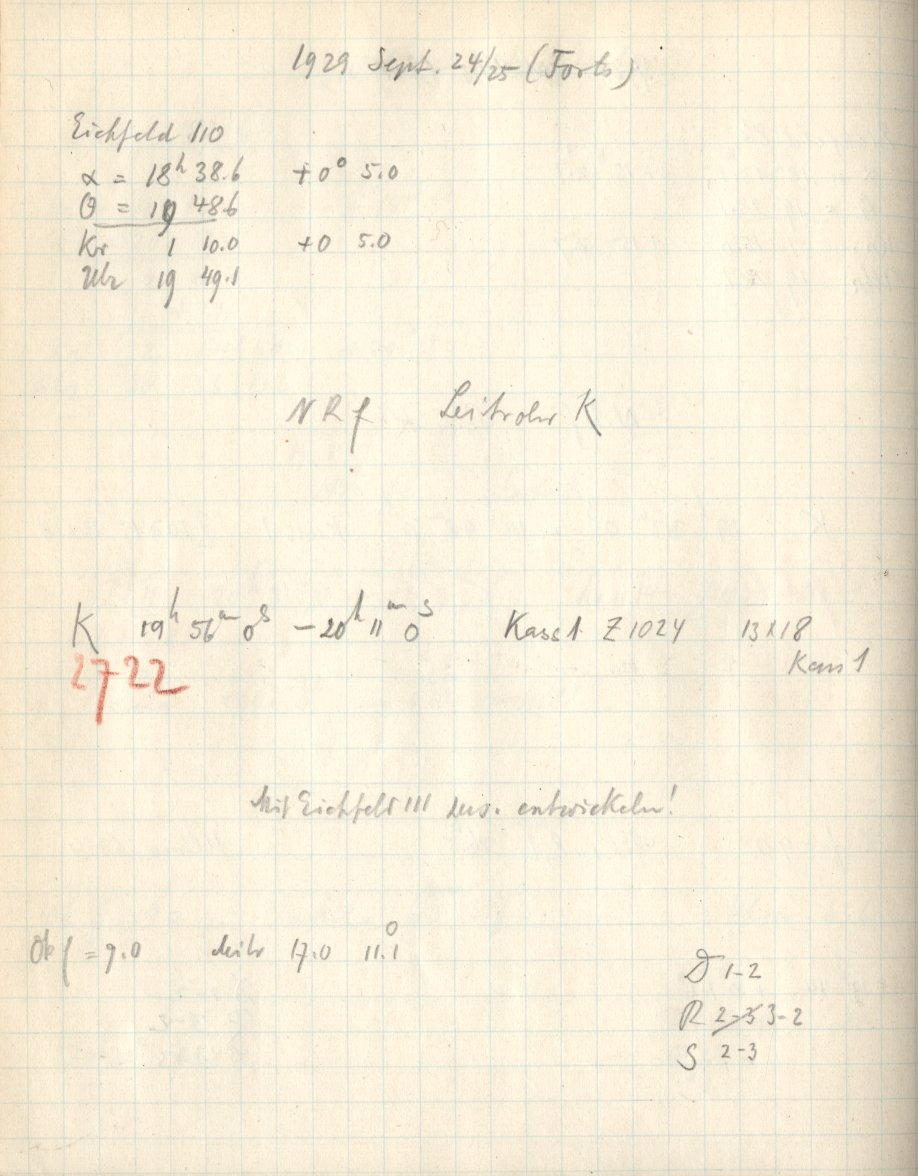 1929 Sept. 24/25 (Forts)
Eichfeld 110
α = 18h 38.6 +0° 5.0
Θ = 19 48.6
Kr 1 10.0 +0 5.0
Uhr 19 49.1
NRf Leitrohr K
K 19h 56m 0s – 20h 11m 0s Kass 1 Z 1024 13x18
Kass 1
2722
Mit Eichfeld 111 zus. entwickeln!
Ok f = 9.0 Leitr 17.0 11.1°
D 1-2
R 2-3 3-2
S 2-3